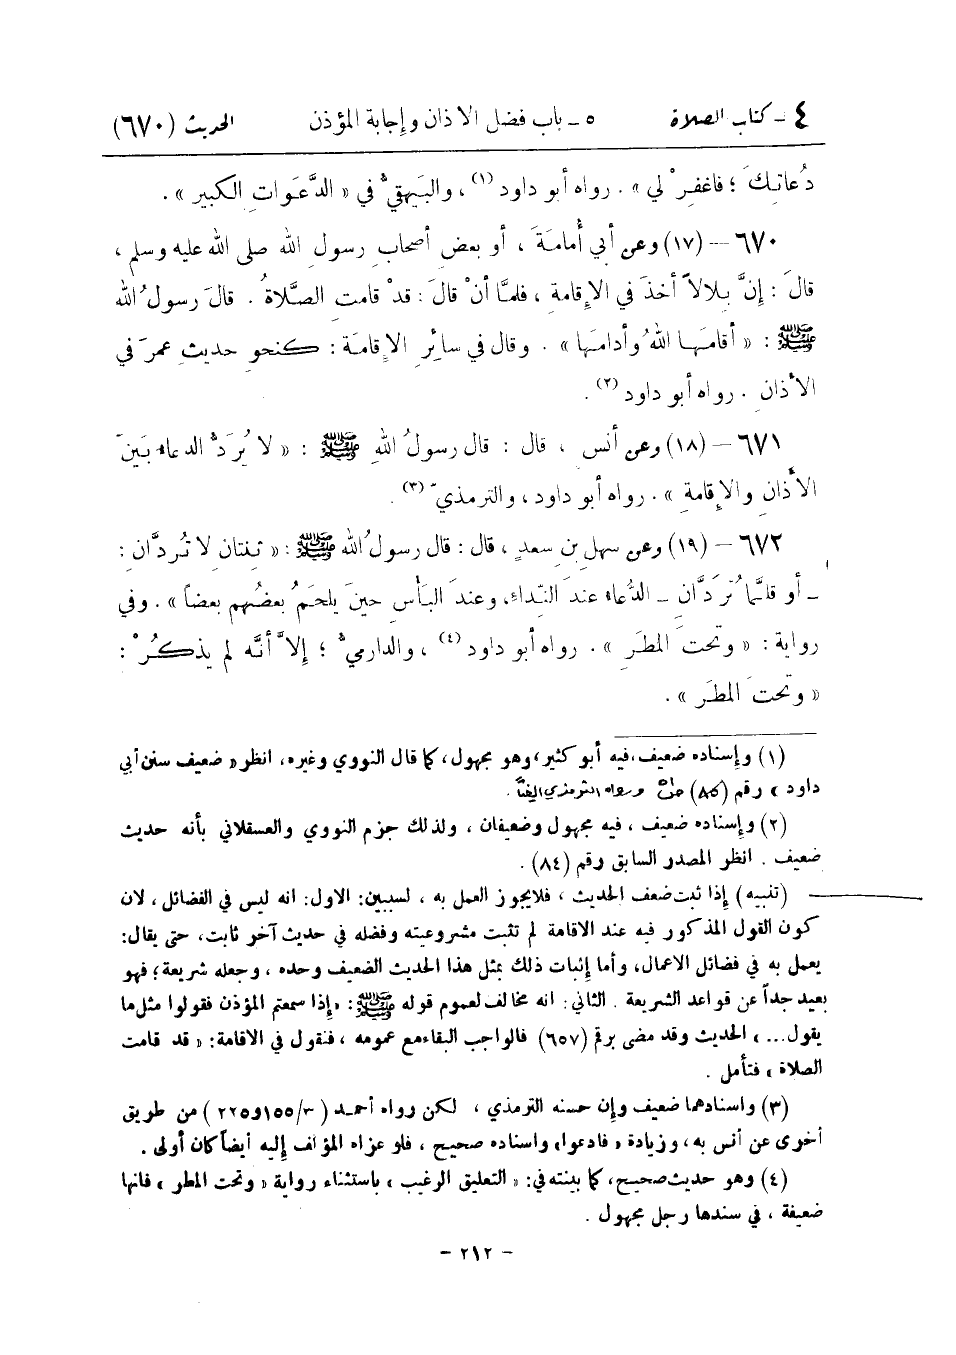 ٤ - كتاب الصلاة ٥ - باب فضل الاذان وإجابة المؤذن الحديث (٦٧٠)
دُعاتِكَ ؛ فاغفِرْ لي » . رواه أبو داود (١) ، والبيهقيُّ في « الدَّعَوات الكبير » .
٦٧٠ – (١٧) وعن أبي أُمامةَ ، أو بعضِ أصحابِ رسولِ اللهِ صلى الله عليه وسلم ،
قالَ : إنَّ بلالاً أخذَ في الإقامةِ ، فلمَّا أنْ قالَ : قدْ قامت الصَّلاةُ . قالَ رسولُ الله
ﷺ : « أقامَها اللهُ وأدامَها » . وقال في سائِرِ الاقامة : كنحوِ حديثِ عمرَ في
الأذانِ . رواه أبو داود (٢) .
٦٧١ – (١٨) وعن أنس ، قال : قال رسولُ اللهِ ﷺ : « لا يُرَدُّ الدعاء بَينَ
الأذانِ والإقامةِ » . رواه أبو داود ، والترمذيّ (٣) .
٦٧٢ – (١٩) وعن سهلِ بنِ سعدٍ ، قال : قال رسولُ الله ﷺ : « ثِنتانِ لا تُردَّانِ :
– أو قلَّما تُرَدَّانِ – الدُّعاء عندَ النِّداءِ ، وعندَ البأْسِ حينَ يلحَمُ بعضُهم بعضاً » . وفي
رواية : « وتحتَ المطَرِ » . رواه أبو داود (٤) ، والدارميُّ ؛ إلاَّ أنَّه لم يذكُرْ :
« وتحتَ المطَرِ » .
(١) وإسناده ضعيف ، فيه أبو كثير ، وهو مجهول ، كما قال النووي وغيره ، انظر « ضعيف سنن أبي
داود » رقم (٨٥) ورواه الترمذي أيضاً .
(٢) وإسناده ضعيف ، فيه مجهول وضعيفان ، ولذلك جزم النووي والعسقلاني بأنه حديث
ضعيف . انظر المصدر السابق رقم (٨٤) .
(تنبيه) إذا ثبت ضعف الحديث ، فلا يجوز العمل به ، لسببين : الاول : انه ليس في الفضائل ، لان
كون القول المذكور فيه عند الاقامة لم تثبت مشروعيته وفضله في حديث آخر ثابت ، حتى يقال :
يعمل به في فضائل الاعمال ، وأما إثبات ذلك بمثل هذا الحديث الضعيف وحده ، وجعله شريعة ؛ فهو
بعيد جداً عن قواعد الشريعة . الثاني : انه مخالف لعموم قوله ﷺ : « إذا سمعتم المؤذن فقولوا مثل ما
يقول ... » الحديث وقد مضى برقم (٦٥٧) فالواجب البقاء مع عمومه ، فنقول في الاقامة : « قد قامت
الصلاة » فتأمل .
(٣) واسنادهما ضعيف وإن حسنه الترمذي ، لكن رواه أحمد (٣/١٥٥ و ٢٢٥) من طريق
أخرى عن أنس به ، وزيادة « فادعوا » واسناده صحيح ، فلو عزاه المؤلف إليه أيضاً كان أولى .
(٤) وهو حديث صحيح ، كما بينته في : « التعليق الرغيب » باستثناء رواية « وتحت المطر » فانها
ضعيفة ، في سندها رجل مجهول .
– ٢١٢ –